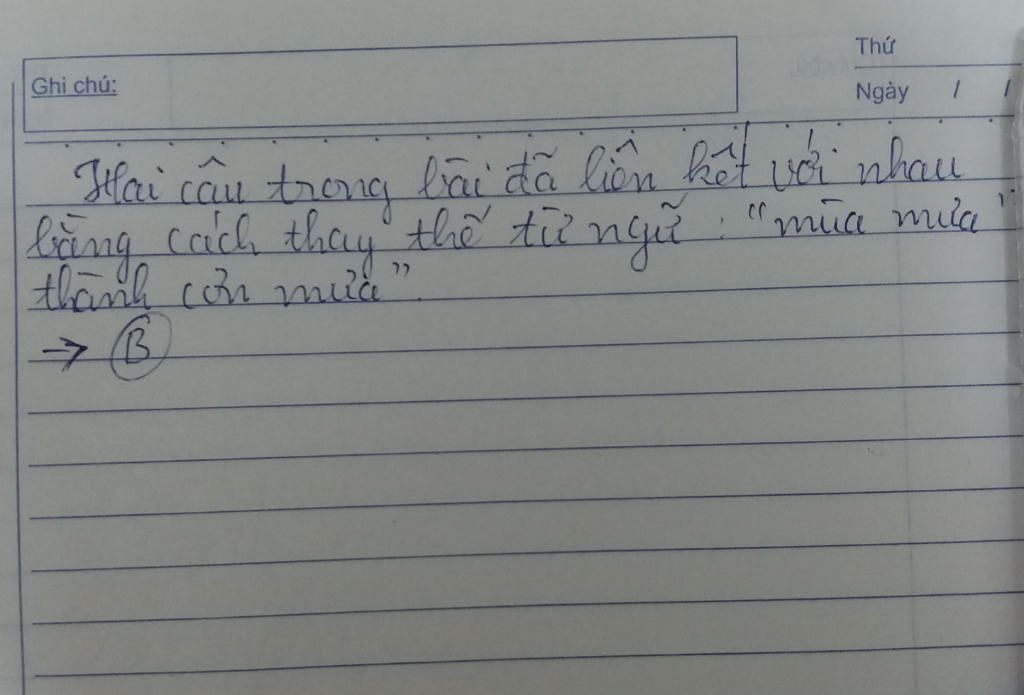 Thứ
Ghi chú:
Ngày / /
Hai câu trong bài đã liên kết với nhau
bằng cách thay thế từ ngữ : "mùa mưa"
thành cơn mưa".
→ B